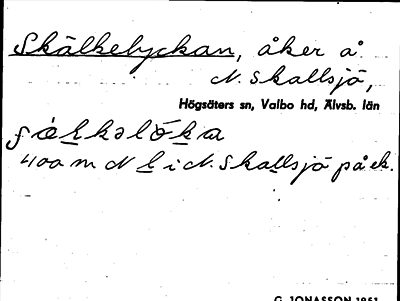 Skälkelyckan, åker å
N. Skallsjö,
Högsäters sn, Valbo hd, Älvsb. län
400 m N l i N. Skallsjö på ek.
G. JONASSON 1951